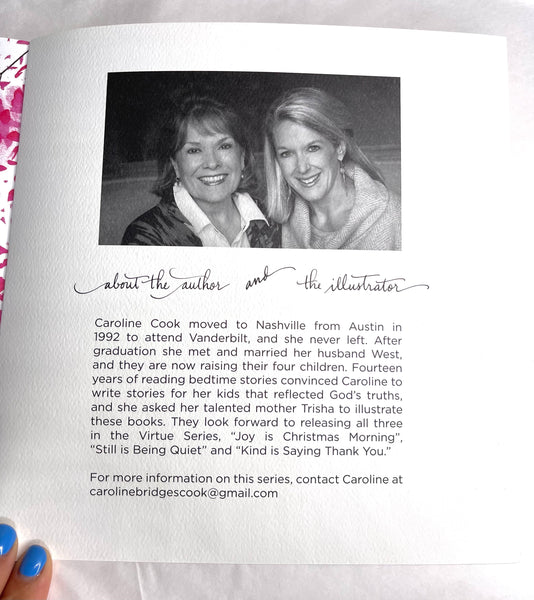 about the author and the illustrator
Caroline Cook moved to Nashville from Austin in
1992 to attend Vanderbilt, and she never left. After
graduation she met and married her husband West,
and they are now raising their four children. Fourteen
years of reading bedtime stories convinced Caroline to
write stories for her kids that reflected God's truths,
and she asked her talented mother Trisha to illustrate
these books. They look forward to releasing all three
in the Virtue Series, “Joy is Christmas Morning”,
“Still is Being Quiet” and “Kind is Saying Thank You.”
For more information on this series, contact Caroline at
carolinebridgescook@gmail.com